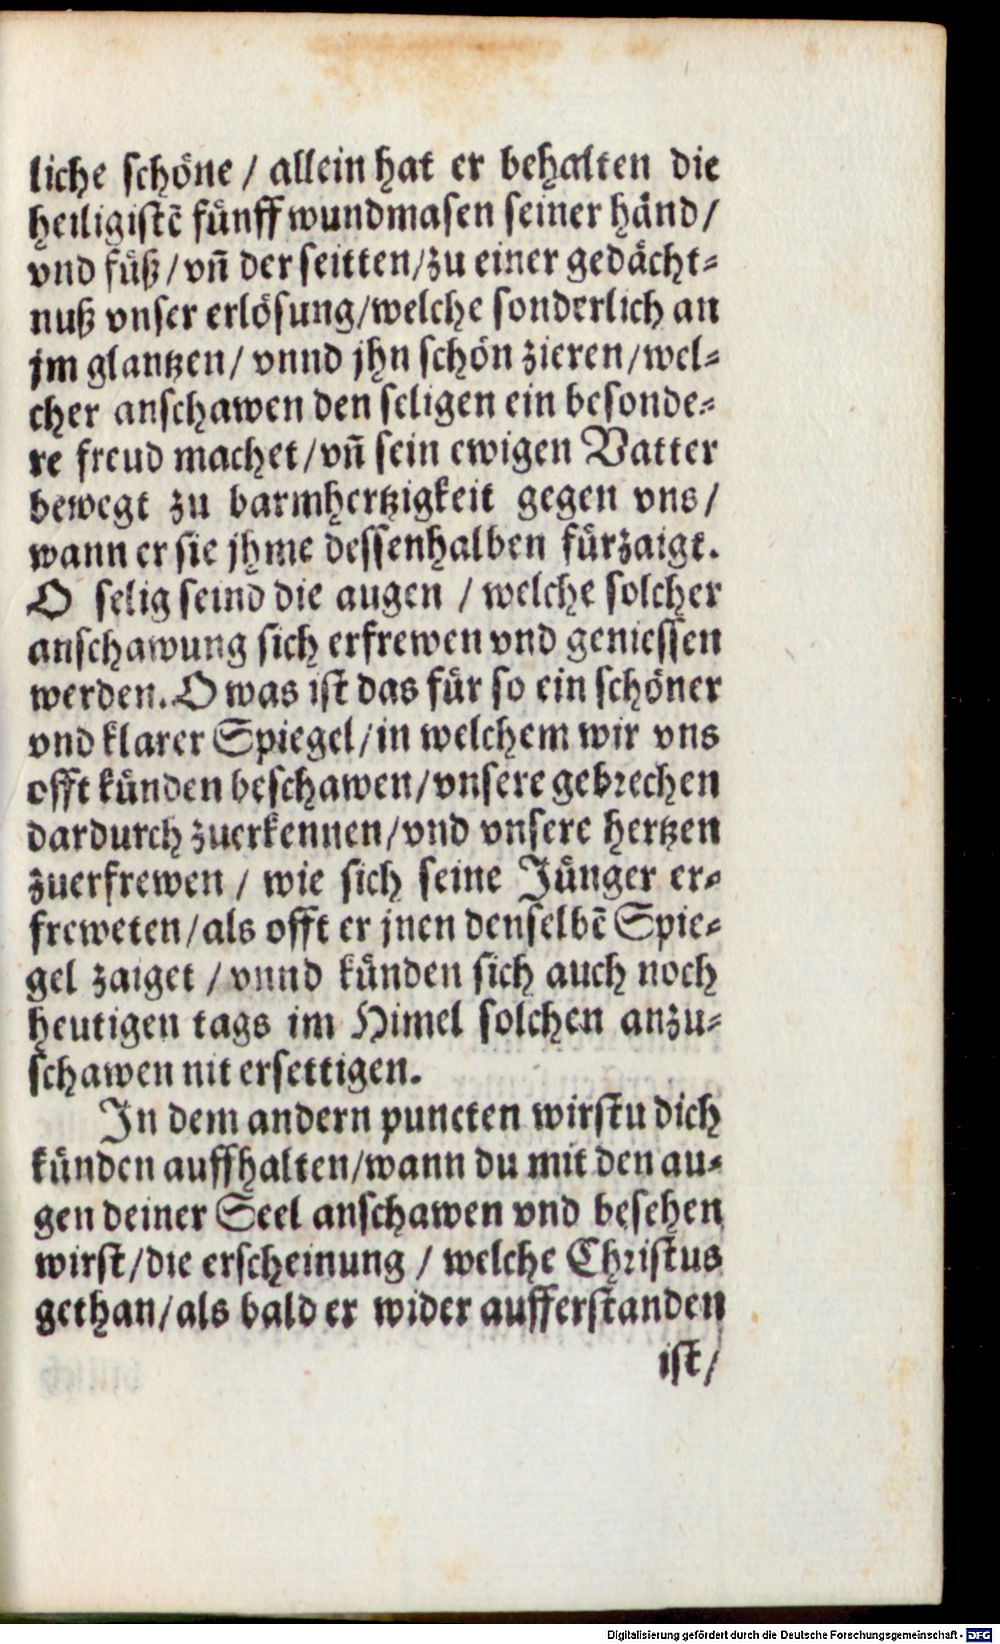 liche schöne / allein hat er behalten die
heiligistē fünff wundmasen seiner händ/
vnd füß/vñ der seitten/zu einer gedächt-
nuß vnser erlösung/welche sonderlich an
jm glantzen/ vnnd jhn schön zieren/wel-
cher anschawen den seligen ein besonde-
re freud machet/vñ sein ewigen Vatter
bewegt zu barmhertzigkeit gegen vns/
wann er sie jhme dessenhalben fürzaigt.
O selig seind die augen / welche solcher
anschawung sich erfrewen vnd geniessen
werden. O was ist das für so ein schöner
vnd klarer Spiegel/in welchem wir vns
offt künden beschawen/vnsere gebrechen
dardurch zuerkennen/vnd vnsere hertzen
zuerfrewen / wie sich seine Jünger er-
freweten/als offt er jnen denselbē Spie-
gel zaiget / vnnd künden sich auch noch
heutigen tags im Himel solchen anzu-
schawen nit ersettigen.
In dem andern puncten wirstu dich
künden auffhalten/wann du mit den au-
gen deiner Seel anschawen vnd besehen
wirst/die erscheinung / welche Christus
gethan/als bald er wider aufferstanden
ist/
Digitalisierung gefördert durch die Deutsche Forschungsgemeinschaft - DFG